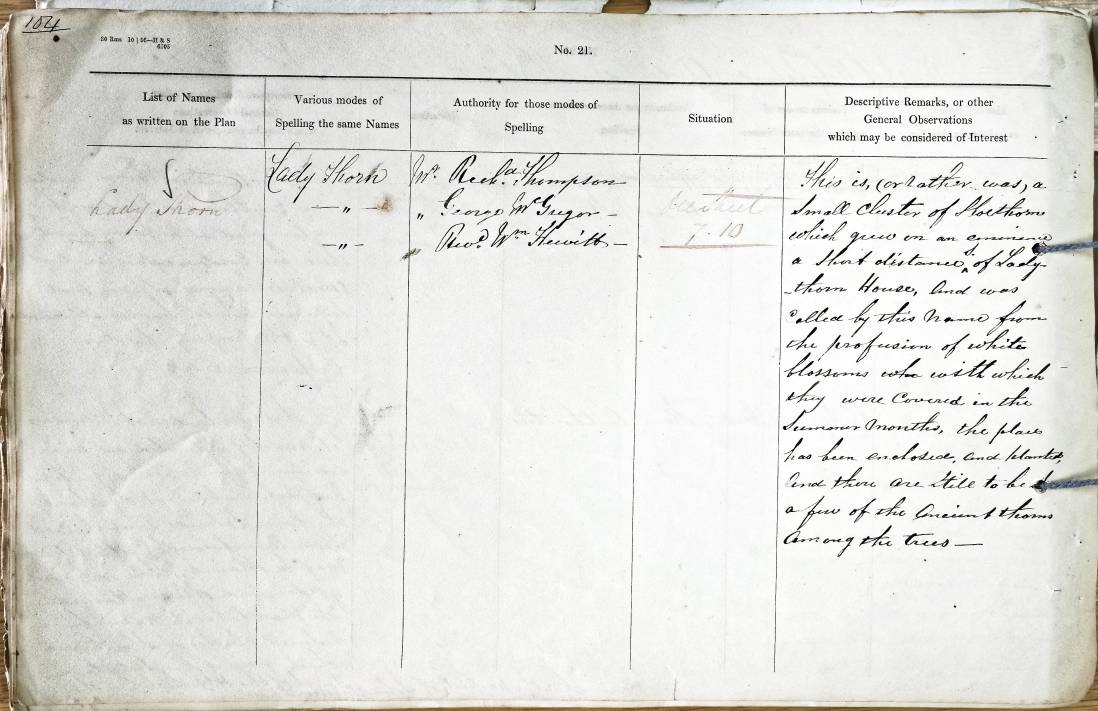 104
No. 21.
List of Names
as written on the Plan
Various modes of
Spelling the same Names
Authority for those modes of
Spelling
Situation
Descriptive Remarks, or other
General Observations
which may be considered of Interest
Lady Thorn
Lady Thorn
— „ —
— „ —
Mr. Richd. Thompson
„ George McGregor —
„ Revd. Wm Hewitt —
7.10
This is, (or rather was, a
Small Cluster of Sloethorn
which grew on an eminence
a short distance of Lady-
-thorn House, and was
Called by this Name from
the profusion of white
blossoms with which
they were Covered in the
Summer Months, the place
has been enclosed, and planted,
and there are Still to be
a few of the Ancient thorns
Among the trees —